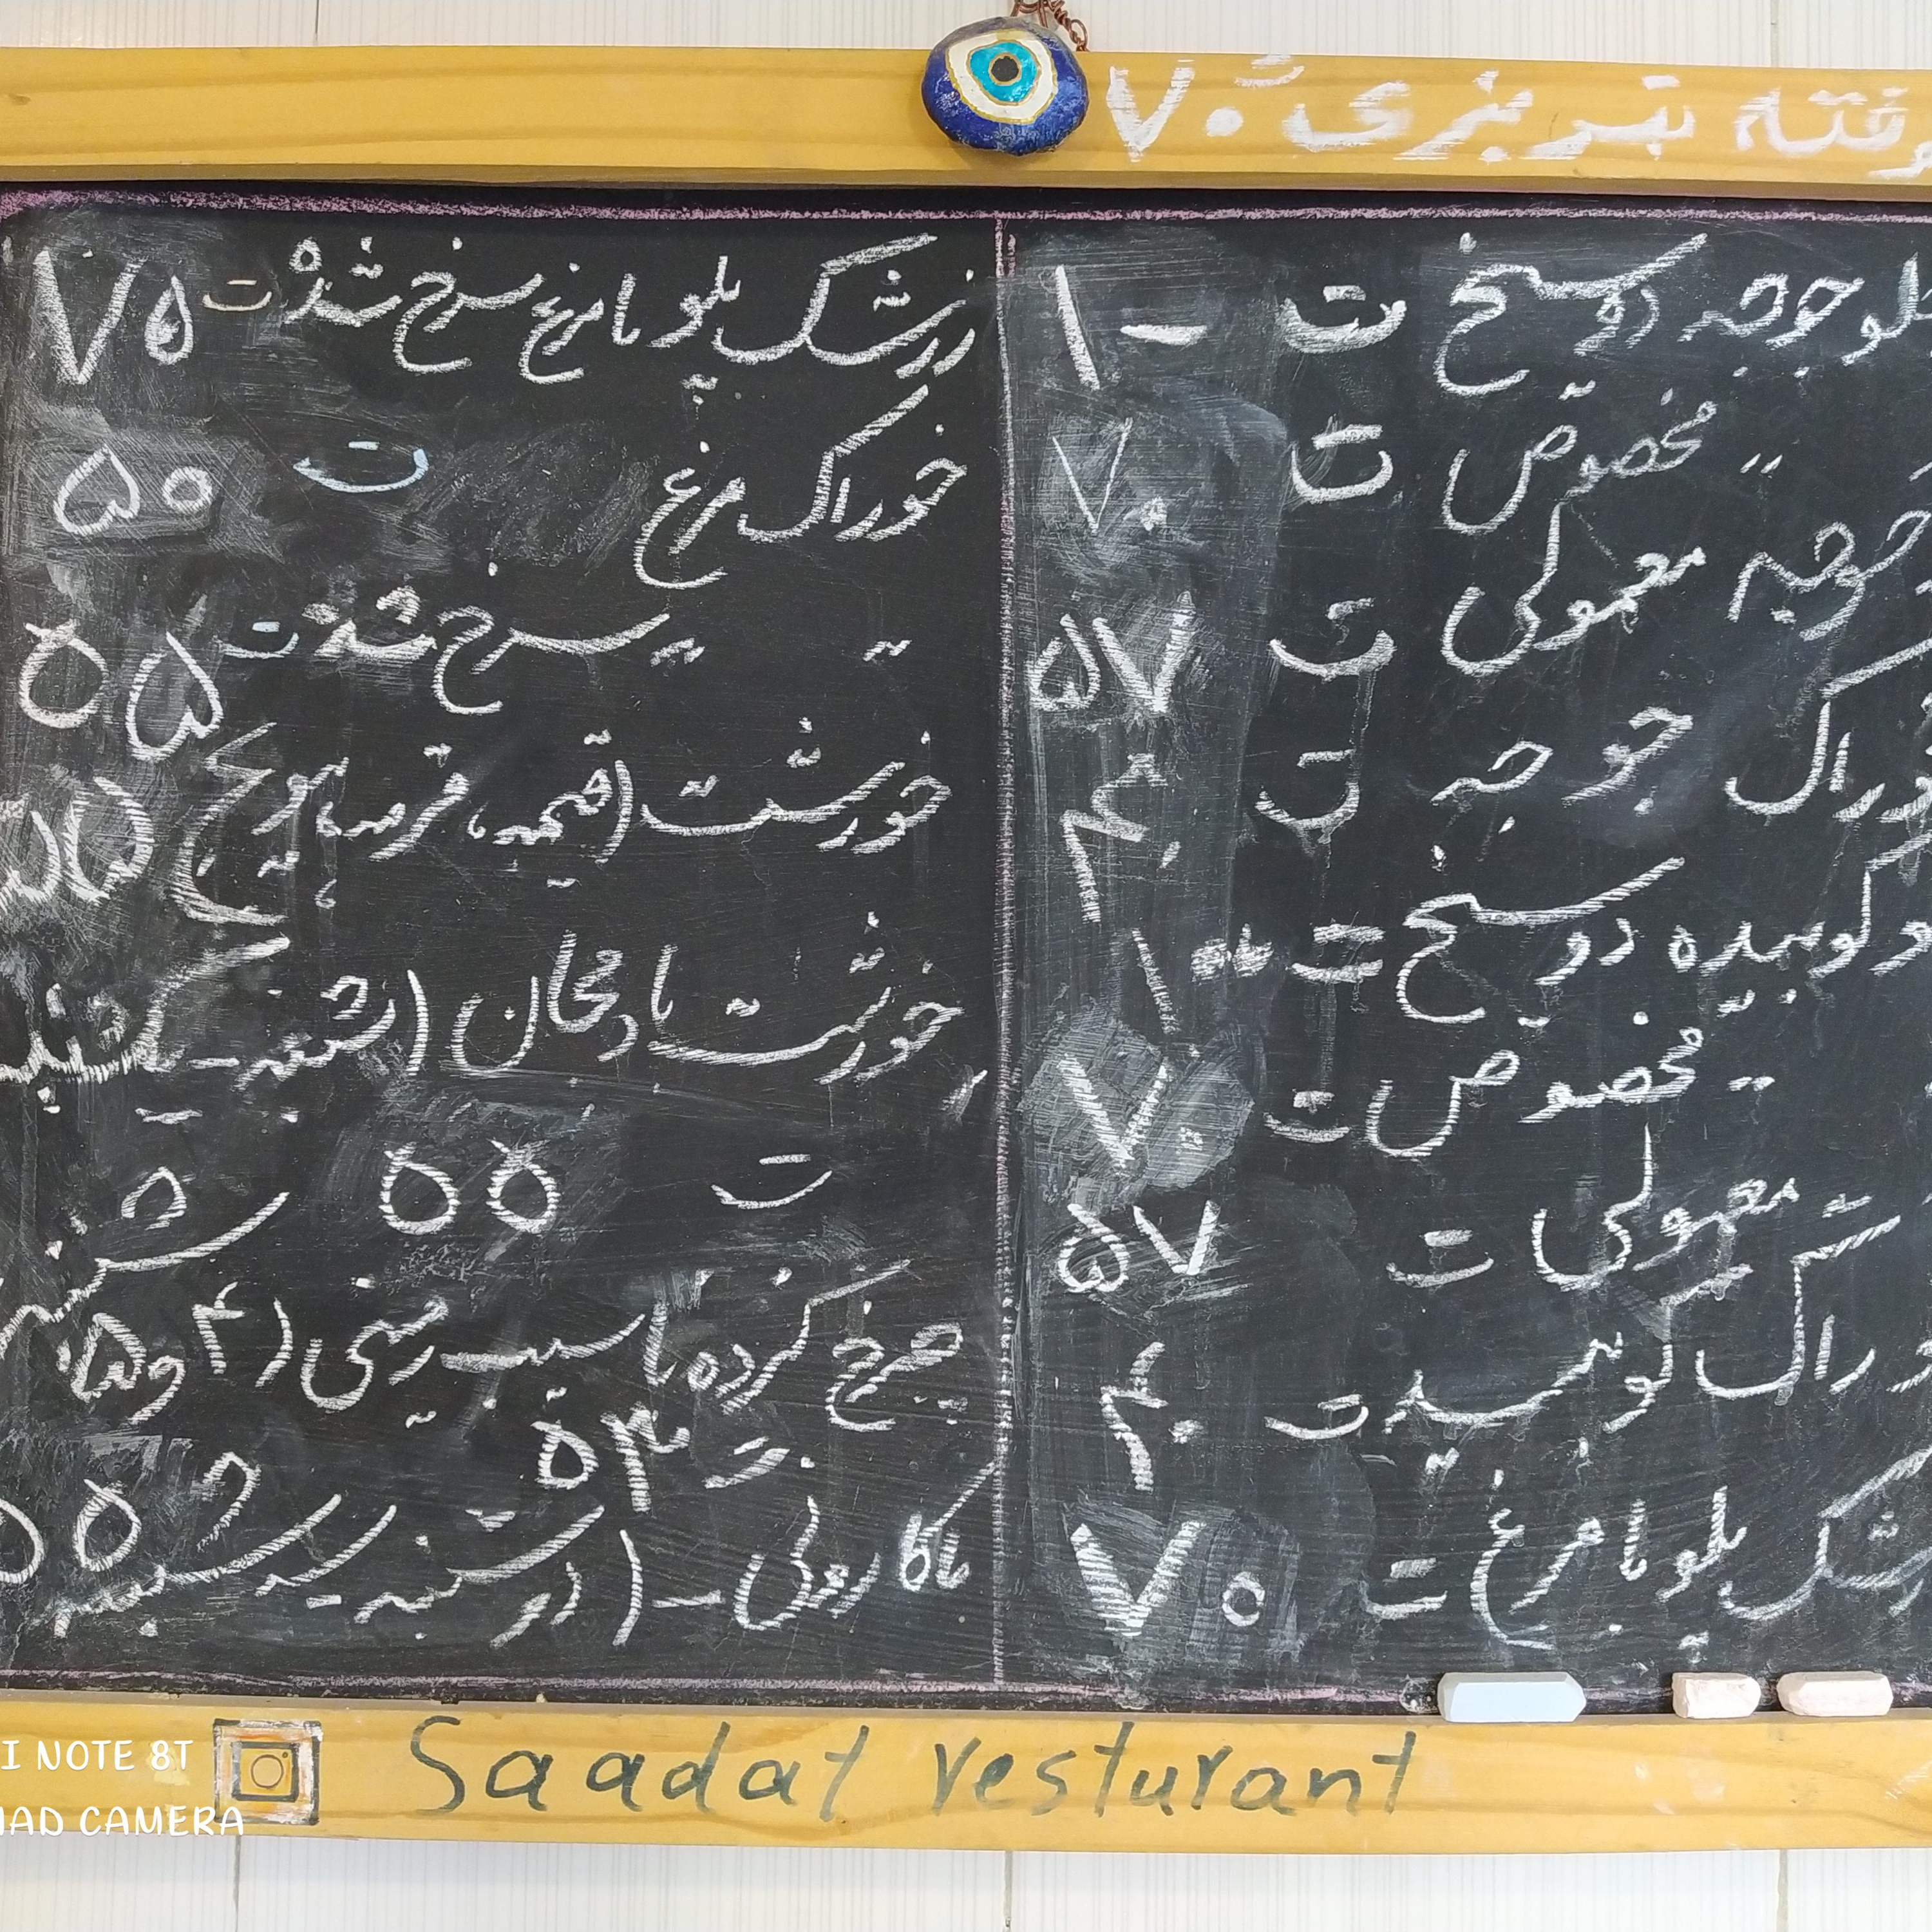 کوفته تبریزی ت ۷۰
چلو جوجه دو سیخ ت ۱۰۰
" " مخصوص ت ۷۰
جوجه معمولی ت ۵۷
خوراک جوجه ت ۴۰
کوبیده دو سیخ ت ۱۰۰
" مخصوص ت ۷۰
معمولی ت ۵۷
خوراک کوبیده ت ۴۰
زرشک پلو با مرغ ت ۷۰
زرشک پلو با مرغ سرخ شده ت ۷۵
خوراک مرغ ت ۵۰
" " سرخ شده ت ۵۵
خورشت (قیمه، قرمه، هویج) ۵۵
خورشت بادمجان (شنبه - یکشنبه
ت ۵۵
چرخ کرده با سیب زمینی (۴ و ۵ شنبه
ت ۴۵
ماکارونی - (دوشنبه - سه شنبه) ۵۵
Saadat resturant
I NOTE 8T
AD CAMERA